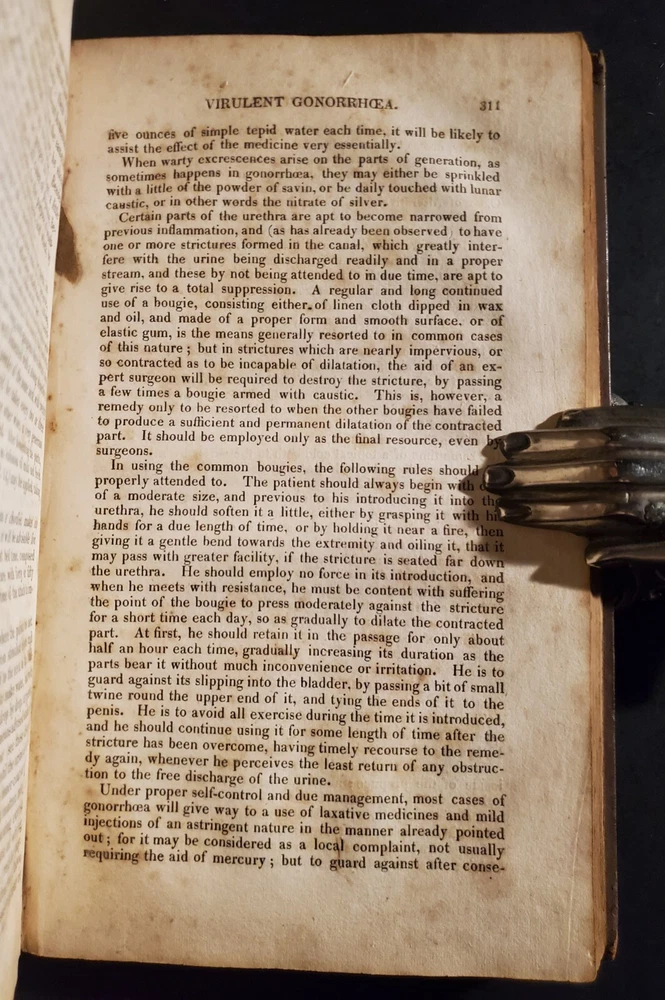 VIRULENT GONORRHŒA. 311
five ounces of simple tepid water each time, it will be likely to
assist the effect of the medicine very essentially.
When warty excrescences arise on the parts of generation, as
sometimes happens in gonorrhœa, they may either be sprinkled
with a little of the powder of savin, or be daily touched with lunar
caustic, or in other words the nitrate of silver.
Certain parts of the urethra are apt to become narrowed from
previous inflammation, and (as has already been observed) to have
one or more strictures formed in the canal, which greatly inter-
fere with the urine being discharged readily and in a proper
stream, and these by not being attended to in due time, are apt to
give rise to a total suppression. A regular and long continued
use of a bougie, consisting either of linen cloth dipped in wax
and oil, and made of a proper form and smooth surface, or of
elastic gum, is the means generally resorted to in common cases
of this nature; but in strictures which are nearly impervious, or
so contracted as to be incapable of dilatation, the aid of an ex-
pert surgeon will be required to destroy the stricture, by passing
a few times a bougie armed with caustic. This is, however, a
remedy only to be resorted to when the other bougies have failed
to produce a sufficient and permanent dilatation of the contracted
part. It should be employed only as the final resource, even by
surgeons.
In using the common bougies, the following rules should
properly attended to. The patient should always begin with
of a moderate size, and previous to his introducing it into the
urethra, he should soften it a little, either by grasping it with his
hands for a due length of time, or by holding it near a fire, then
giving it a gentle bend towards the extremity and oiling it, that it
may pass with greater facility, if the stricture is seated far down
the urethra. He should employ no force in its introduction, and
when he meets with resistance, he must be content with suffering
the point of the bougie to press moderately against the stricture
for a short time each day, so as gradually to dilate the contracted
part. At first, he should retain it in the passage for only about
half an hour each time, gradually increasing its duration as the
parts bear it without much inconvenience or irritation. He is to
guard against its slipping into the bladder, by passing a bit of small
twine round the upper end of it, and tying the ends of it to the
penis. He is to avoid all exercise during the time it is introduced,
and he should continue using it for some length of time after the
stricture has been overcome, having timely recourse to the reme-
dy again, whenever he perceives the least return of any obstruc-
tion to the free discharge of the urine.
Under proper self-control and due management, most cases of
gonorrhœa will give way to a use of laxative medicines and mild
injections of an astringent nature in the manner already pointed
out; for it may be considered as a local complaint, not usually
requiring the aid of mercury; but to guard against after conse-